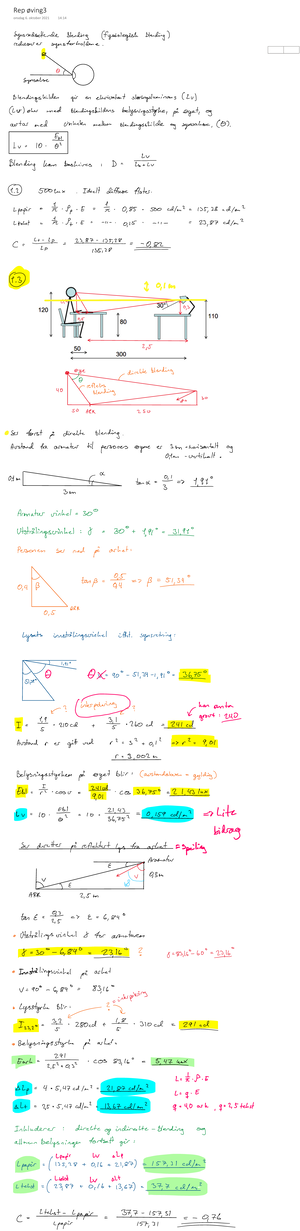 Rep øving3
onsdag 6. oktober 2021
Synsnedsettende blending (Fysiologisk blending)
reduserer synsforholdene.
θ
Synsakse
Blendingskilden gir en ekvivalent sløringsluminans (Lv)
(Lv) øker med blendingskildens belysningsstyrke, på øyet, og
avtar med vinkelen mellom blendingskilde og synsaksen, (θ).
Lv = 10 · Ebl / θ²
Blending kan beskrives : D = Lv / Lb+Lv
1.2 500 lux . Idealt diffuse flater.
Lpapir = 1/π · ρp · E = 1/π · 0,85 · 500 cd/m² = 135,28 cd/m²
Ltekst = 1/π · ρt · E = 0,15 = 23,87 cd/m²
C = Lt - Lp / Lp = 23,87 - 135,28 / 135,28 = -0,82
1.3
0,1m
30°
120
80
110
2,5
50
300
øye
θ
direkte blending
refleks blending
40
50 ARK 250
Ser først på direkte blending.
Avstand fra armatur til personens øyne er 3m horisontalt og
0,1m vertikalt.
0,1m
α
3m
tan α = 0,1 / 3 => 1,91°
Armatur vinkel = 30°
Utstrålingsvinkel : γ = 30° + 1,91° = 31,91°
Personen ser ned på arket.
0,4
β
0,5
ARK
tan β = 0,5 / 0,4 => β = 51,34°
Lysets innstrålingsvinkel ift. synsretning:
θ
θ = 90° - 51,34 - 1,91° = 36,75°
interpolering
I = 1,9 / 5 · 210cd + 3,1 / 5 · 260 cd = 241 cd
kan anta grovt : 240
Avstand r er gitt ved r² = 3² + 0,1² => r² = 9,01
r = 3,002 m
Belysningsstyrken på øyet blir : (avstandsloven = gyldig)
Ebl = I / r² · cos v = 241cd / 9,01 · cos 36,75° = 21,43 lux
Lv = 10 · Ebl / θ² = 10 · 21,43 / 36,75² = 0,159 cd/m² => Lite bidrag
Ser deretter på reflektert lys fra arket = Speiling
Armatur
0,3 m
ARK
2,5 m
tan ε = 0,3 / 2,5 => ε = 6,84°
Utstrålingsvinkel γ for armaturen
γ = 30° - 6,84° = 23,16°
Innstrålingsvinkel på arket
V = 90° - 6,84° = 83,16°
Lysstyrke blir
interpolering
= 3,2 / 5 · 280cd + 1,8 / 5 · 310 cd = 291 cd
Belysningsstyrke på arket.
Eark = 291 / 2,5² + 0,3² · cos 83,16° = 5,47 lux
ΔLp = 4 · 5,47 cd/m² = 21,87 cd/m²
ΔLt = 2,5 · 5,47 cd/m² = 13,67 cd/m²
L = q · E
q = 4,0 ark , q = 2,5 tekst
Inkluderer : direkte og indirekte blending og
allmenn belysningen fortsatt gir :
Lpapir Lv ΔLp
Lpapir = (135,28 + 0,16 + 21,87) = 157,31 cd/m²
Ltekst Lv ΔLt
Ltekst = (23,87 + 0,16 + 13,67) = 37,7 cd/m²
C = Ltekst - Lpapir / Lpapir = 37,7 - 157,31 / 157,31 = -0,76